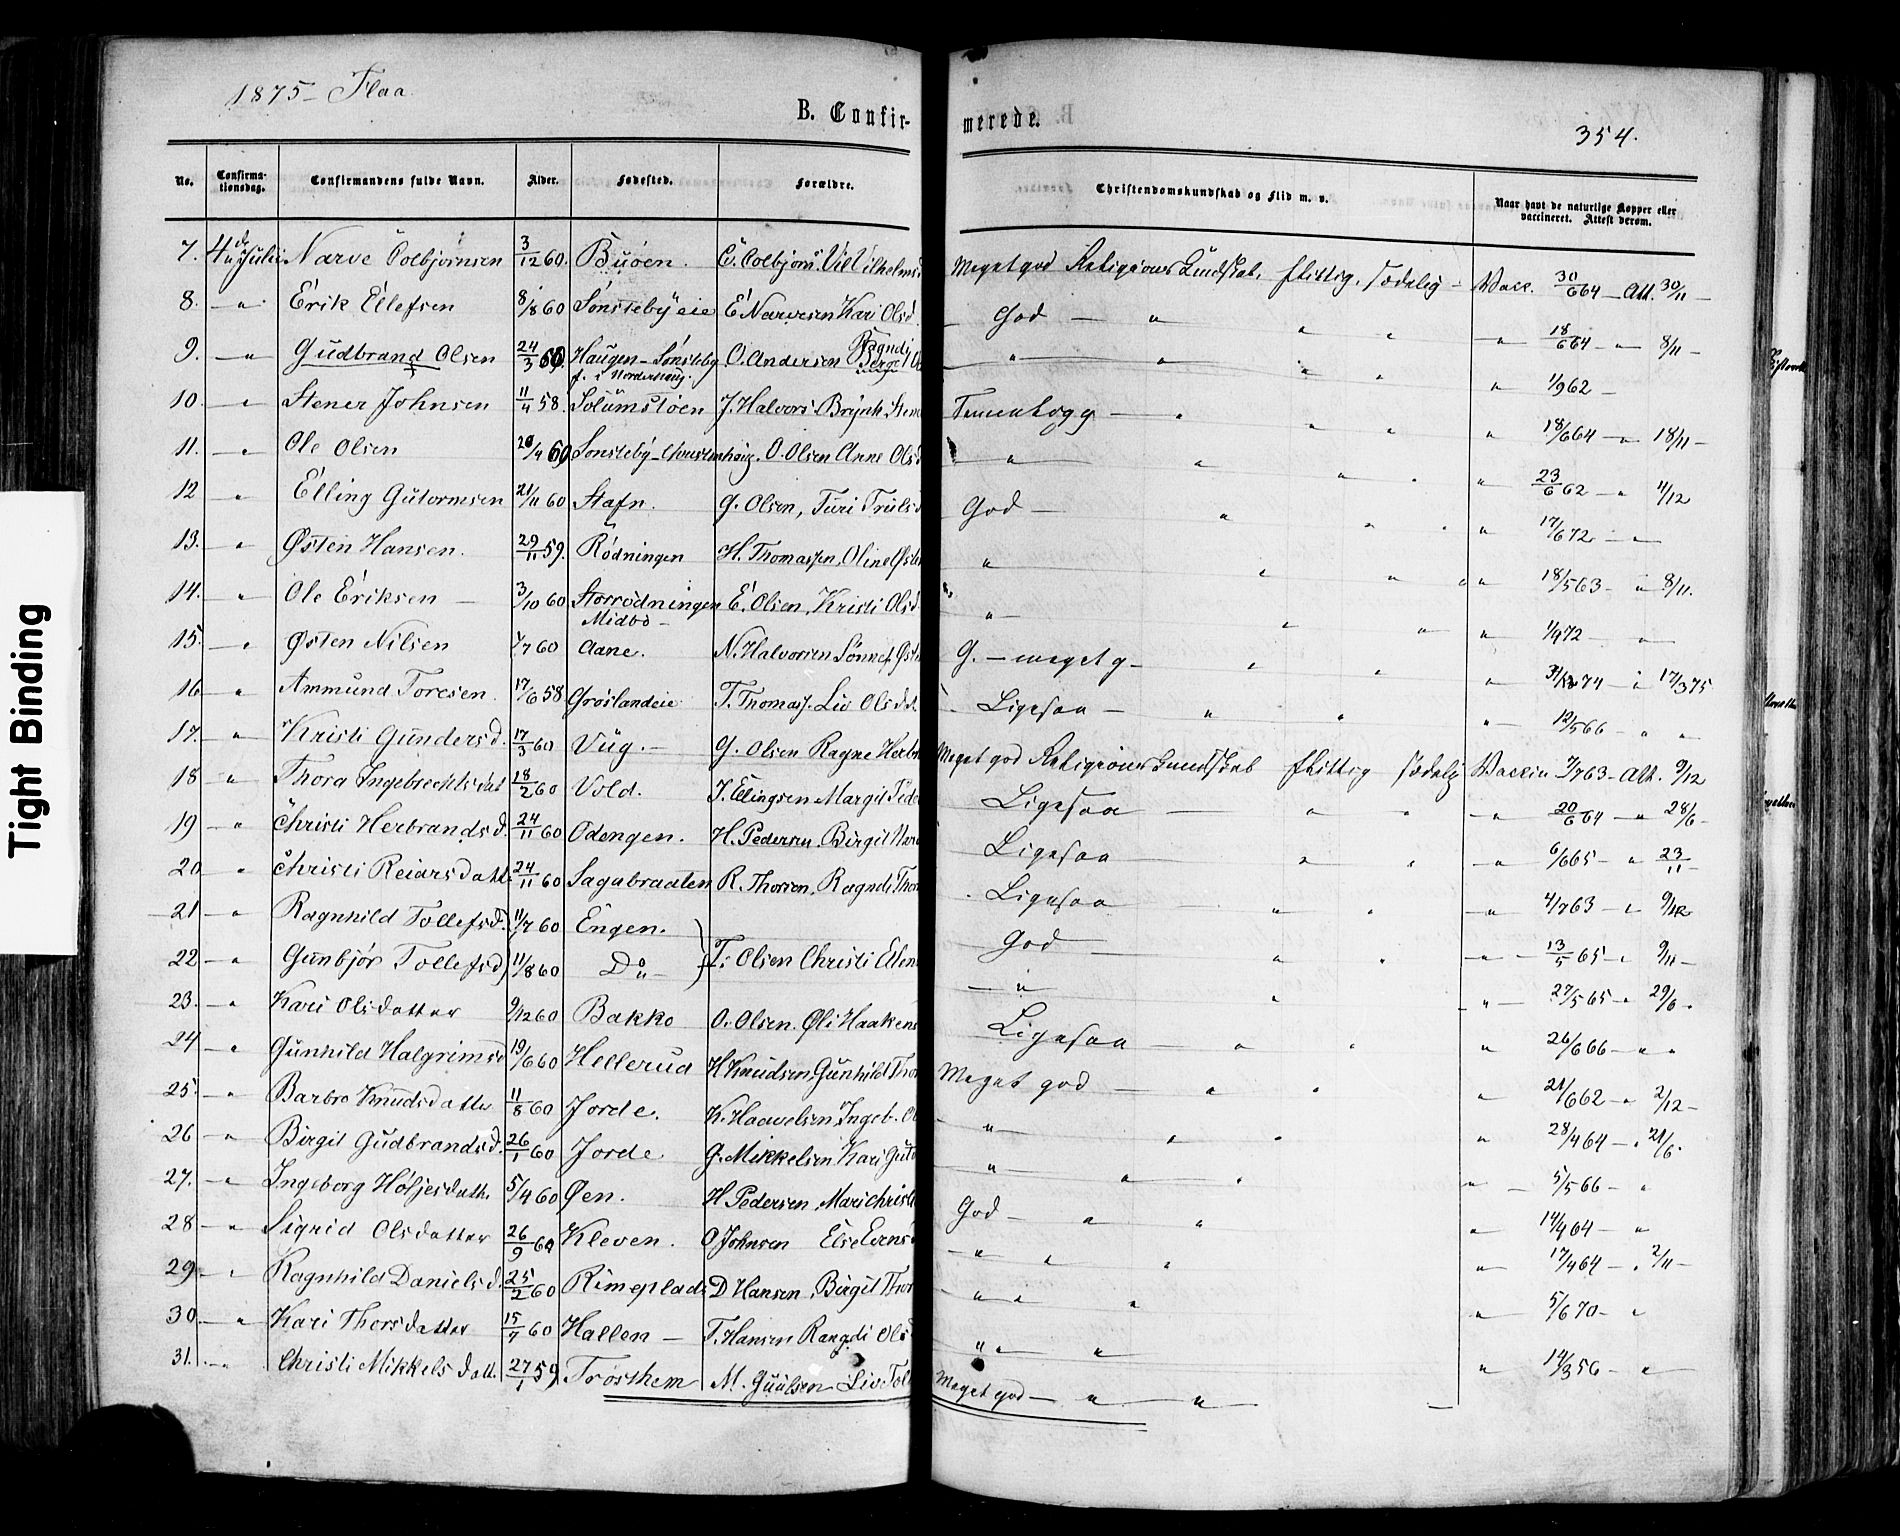 1875 - Flaa.
B. Confirmerede.
354.
No. Confirmationsdag. Confirmandens fulde Navn. Alder. Fødested. Forældre. Christendomskundskab og Flid m. v. Naar havt de naturlige Kopper eller vaccineret. Attest derom.
7. 4de Julii Narve Colbjørnsen 3/12 60. Buøen. Meget god Religions Kundskab, flittig, sædelig - Vacc. 30/6 64 - Att. 30/11 -
8. - " Erik Ellefsen 8/8 60 Sønstebyeie E Narvesen Kari Olsd. God - " " " - " 18/6 64 - " 8/11 -
9. - " Gudbrand Olsen 24/3 60 Haugen - Sønsteby O. Andersen " " " " 1/9 62 -
f. i Norderhoug.
10. - " Stener Johnsen 11/4 58 Solumsløen J. Halvors. Temmelig g - " " " " 18/6 64 - " 18/11 -
11. - " Ole Olsen 20/4 60 Sønsteby - O. Olsen Anne Olsd " " " " 23/6 62 - " 11/12
12 - " Elling Gutormsen 21/11 60 Stafn. G. Olsen, Turi Truls God - " " " " 17/6 72 - "
13. - " Østen Hansen. 29/11 59. Rødningen H. Thomassen, Oline Østen " " " " " 18/5 63 - " 8/11.
14. - " Ole Eriksen - 3/10 60 Storrødningen E. Olsen, Kristi Olsd. " - " " " 1/9 72 - "
Midbø -
15. - " Østen Nilsen 1/7 60 Aane. N. Halvorsen Sønnef. Østen G. - meget g - " " " 74 - " 17/3 75
16 - " Ammund Toresen. 17/6 58 Grøslandeie T. Thomass. Liv Olsdat Ligesaa - " " " 12/5 66 - " "
17. - " Kristi Gundersd. 17/3 60 Vüg. - G. Olsen Ragne Herbr Meget god Religions Kundskab flittig sædelig Vaccin 7/7 63 - Att. 9/12
18 - " Thora Ingebrechtsdat 18/2 60 Vold. I. Ellingsen Margit Peder Ligesaa - " " - " 20/6 64 - " 28/6 -
19 - " Christi Herbrandsd. 24/11 60 Odengen. H. Pedersen, Birgit Narv Ligesaa " " - " 6/6 65 - " 23/11 -
20 - " Christi Reiarsdatt. 24/11 60 Sagabraaten R. Thorsen, Ragndi Thor Ligesaa " " - " 4/7 63 - " 9/12
21 - " Ragnhild Tollefsd. 11/7 60 Engen. God " " - " - 13/5 65 - " 9/11 -
22 - " Gunbjør Tollefsd) 11/8 60 Do } T. Olsen Christi - " - " " - 27/5 65 - " 29/6 -
23. - " Kari Olsdatter 9/12 60 Bakko O. Olsen. Øli Haakens Ligesaa - " " " 26/6 66 - " "
24 - " Gunhild Halgrimsd 19/6 60 Hellerud H Knudsen, Gunhild Thor Meget god - " " " 21/6 62 - " 2/12 -
25. - " Barbro Knudsdatter 11/8 60 Jorde. K. Haavelsen Ingeb. Ol - " - " " " 28/4 64 - " 21/6.
26 - " Birgit Gudbrandsd. 26/1 60 Jorde G. Mikkelsen Kari Guto " " " " - 5/5 66 - "
27. - " Ingeborg Høljesdatt. 5/4 60 Øen. H Pedersen, Mari Christi God - " " " - 14/9 64 - "
28 - " Sigrid Olsdatter 26/9 60 Kleven. O Johnsen Else Evens - " - " " " - 17/4 64 - " 2/11 -
29 - " Ragnhild Danielsd. 25/2 60 Rimeplads D Hansen, Birgit Thor " " " " - 5/6 70 - "
30 - " Kari Thorsdatter 15/7 60 Hallen - T. Hansen Rangdi Ols " " " " - 14/3 56 - "
31. - " Christi Mikkelsdatt. 27/1 59 Trøsthem M. Guulsen Liv Toll Meget god - " "
Tight Binding